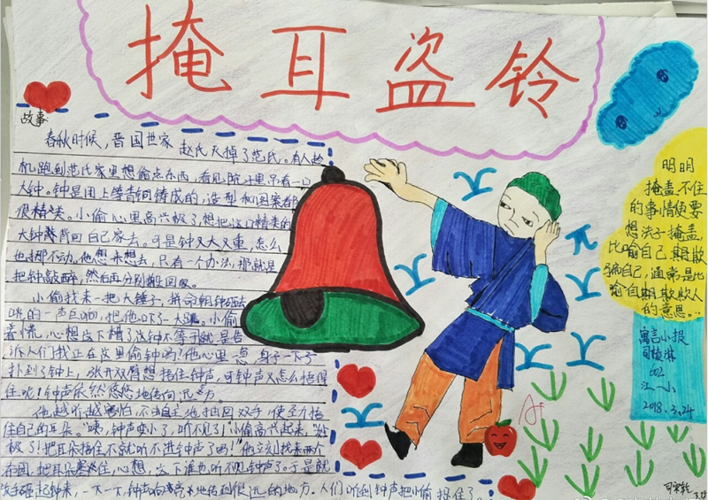 掩耳盗铃
故事
春秋时候，晋国世家赵氏灭掉了范氏。有人趁
机跑到范氏家里想偷点东西，看见院子里吊着一口
大钟。钟是用上等青铜铸成的，造型和图案都
很精美。小偷心里高兴极了，想把这口精美的
大钟背回自己家去。可是钟又大又重，怎么
也挪不动。他想来想去，只有一个办法，那就是
把钟敲碎，然后再分别搬回家。
小偷找来一把大锤子，拼命朝钟砸去
咣的一声巨响，把他吓了一大跳。小偷
着慌，心想这下糟了，这钟不等于就是告
诉人们我正在这里偷钟吗？他心里一急，身子一下子
扑到了钟上，张开双臂想捂住钟声，可钟声又怎么捂得
住呢！钟声依然悠悠地传向远方。
他越听越害怕，不由自主地抽回双手，使劲捂
住自己的耳朵。“咦，钟声变小了，听不见了！”小偷高兴起来，“妙
极了！把耳朵捂住不就听不进钟声了吗！”他立刻找来两个
布团，把耳朵塞住，心想，这下谁也听不见钟声了。于是就
砸起钟来，一下一下，钟声响亮地传到很远的地方。人们听到钟声把小偷捉住了。
明明
掩盖不住
的事情使要
想法子掩盖，
比喻自己欺
骗自己，通常是比
喻自欺欺人
的意思。
寓言小报
江一小
2018.3.24